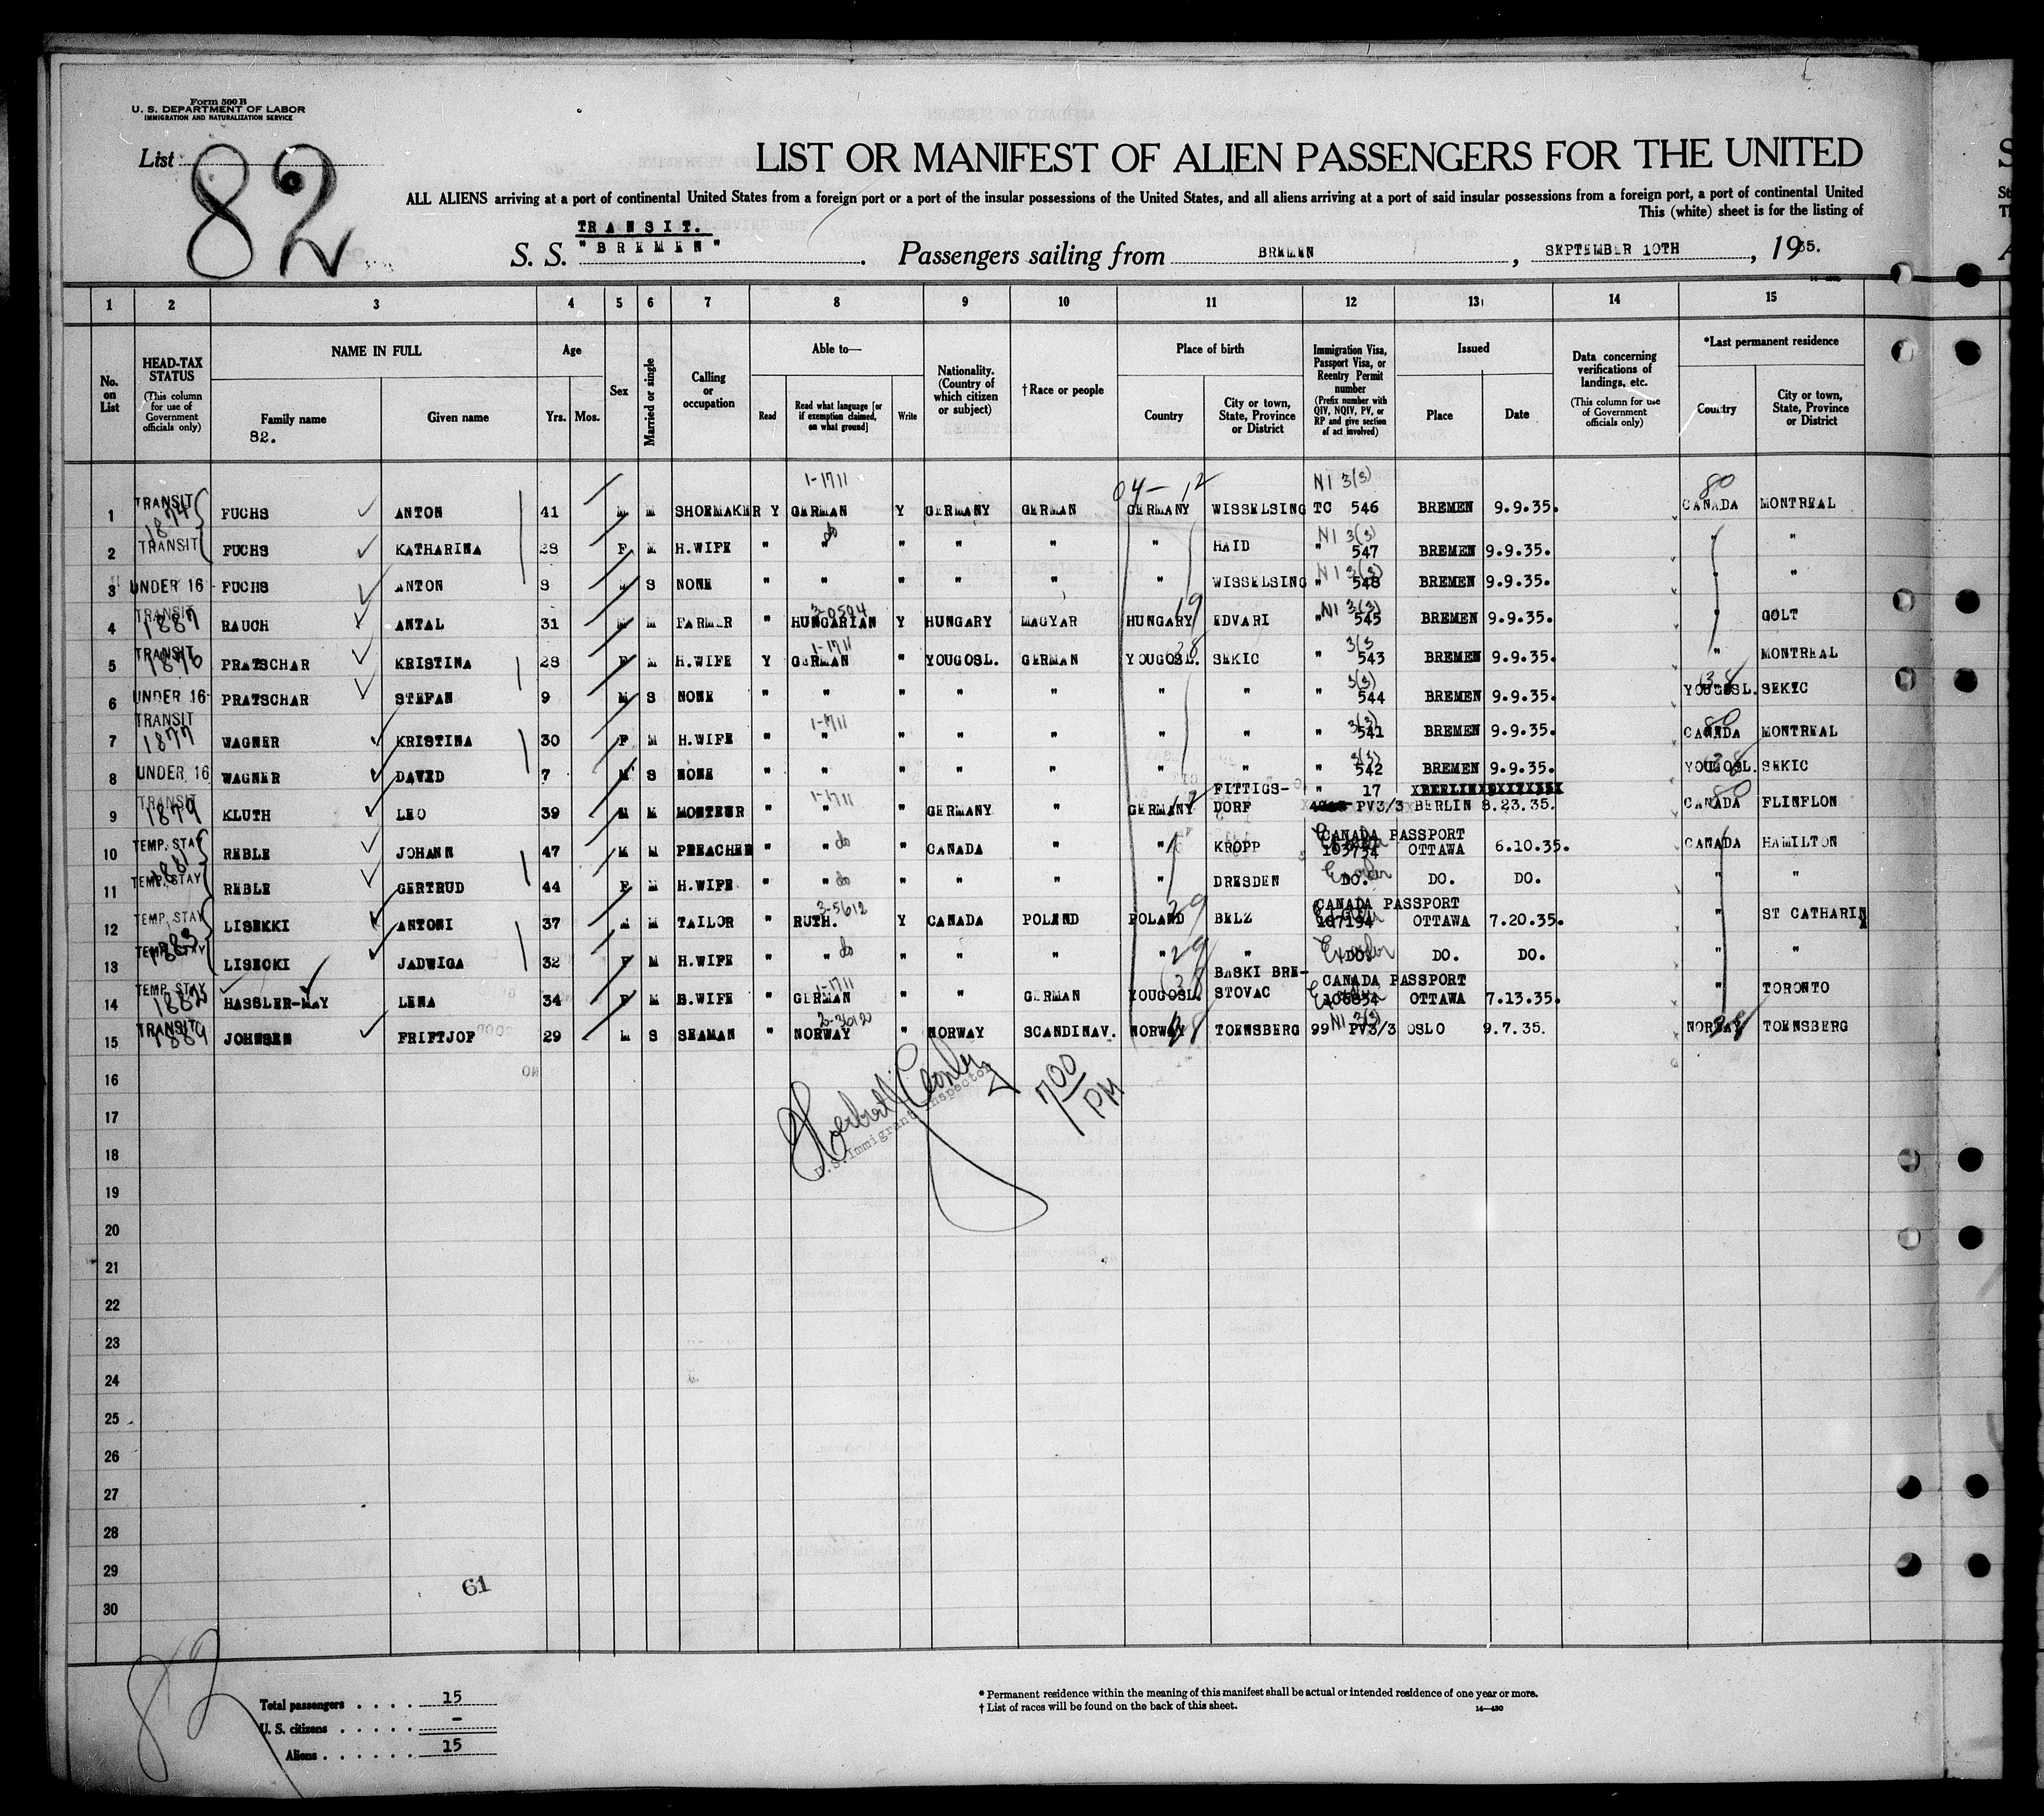 Form 500 B
U. S. DEPARTMENT OF LABOR
IMMIGRATION AND NATURALIZATION SERVICE
List 82
LIST OR MANIFEST OF ALIEN PASSENGERS FOR THE UNITED
ALL ALIENS arriving at a port of continental United States from a foreign port or a port of the insular possessions of the United States, and all aliens arriving at a port of said insular possessions from a foreign port, a port of continental United
This (white) sheet is for the listing of
TRANSIT.
S. S. "BREMEN". Passengers sailing from BREMEN, SEPTEMBER 10TH, 1935.
1 2 3 4 5 6 7 8 9 10 11 12 13 14 15
No. on List
HEAD-TAX STATUS (This column for use of Government officials only)
NAME IN FULL
Family name
82.
Given name
Age
Yrs. Mos.
Sex
Married or single
Calling or occupation
Able to—
Read
Read what language [or if exemption claimed, on what ground]
Write
Nationality. (Country of which citizen or subject)
†Race or people
Place of birth
Country
City or town, State, Province or District
Immigration Visa, Passport Visa, or Reentry Permit number (Prefix number with QIV, NQIV, PV, or RP and give section of act involved)
Issued
Place
Date
Data concerning verifications of landings, etc. (This column for use of Government officials only)
*Last permanent residence
Country
City or town, State, Province or District
1-1711 04- 12 N1 3(3) 80
1 TRANSIT 1874 FUCHS ANTON 41 M M SHOEMAKER Y GERMAN Y GERMANY GERMAN GERMANY WISSELSING TC 546 BREMEN 9.9.35. CANADA MONTREAL
2 TRANSIT FUCHS KATHARINA 28 F M H.WIFE " " do " " " " HAID N1 3(3) " 547 BREMEN 9.9.35. " "
3 UNDER 16 FUCHS ANTON 8 M S NONE " " " " " " WISSELSING N1 3(3) " 548 BREMEN 9.9.35. " "
4 TRANSIT 1887 RAUCH ANTAL 31 M M FARMER " HUNGARIAN 3-0594 Y HUNGARY MAGYAR HUNGARY 19 EDVARI N1 3(3) " 545 BREMEN 9.9.35. " GOLT
5 TRANSIT 1876 PRATSCHAR KRISTINA 28 F M H.WIFE Y GERMAN 1-1711 " YOUGOSL. GERMAN YOUGOSL. 38 SEKIC 3(3 " 543 BREMEN 9.9.35. " MONTREAL
6 UNDER 16 PRATSCHAR STEFAN 9 M S NONE " " " " " " " 3(3) " 544 BREMEN 9.9.35. YOUGOSL. 38 SEKIC
7 TRANSIT 1877 WAGNER KRISTINA 30 F M H.WIFE " " 1-1711 " " " " " 3(3) " 541 BREMEN 9.9.35. CANADA 80 MONTREAL
8 UNDER 16 WAGNER DAVID 7 M S NONE " " " " " " " 3(3) " 542 BREMEN 9.9.35. YOUGOSL. 38 SEKIC
9 TRANSIT 1879 KLUTH LEO 39 M M MONTEUR " " 1-1711 " GERMANY " GERMANY 12 FITTIGS-DORF " 17 PV3/3 BERLIN 8.23.35. CANADA 80 FLINFLON
10 TEMP. STAY 1881 REBLE JOHANN 47 M M PREACHER " " do " CANADA " " KROPP CANADA PASSPORT 103734 OTTAWA 6.10.35. CANADA HAMILTON
11 TEMP. STAY REBLE GERTRUD 44 F M H.WIFE " " do " " " " DRESDEN DO. DO. DO. " "
12 TEMP. STAY 1883 LISEKKI ANTONI 37 M M TAILOR " RUTH. 3-5612 Y CANADA POLAND POLAND 29 BELZ CANADA PASSPORT 107194 OTTAWA 7.20.35. " ST CATHARIN
13 TEMP. STAY LISECKI JADWIGA 32 F M H.WIFE " " do " " " " 29 " DO. DO. DO. " "
14 TEMP. STAY 1882 HASSLER-MAY LENA 34 F M H.WIFE " GERMAN 1-1711 " " GERMAN YOUGOSL. 38 BASKI BRE-STOVAC CANADA PASSPORT 106834 OTTAWA 7.13.35. " TORONTO
15 TRANSIT 1889 JOHNSEN FRIFTJOF 29 M S SEAMAN " NORWAY 2-3612 " NORWAY SCANDINAV. NORWAY 28 TOENSBERG N1 3(3) 99 PV3/3 OSLO 9.7.35. NORWAY TOENSBERG
16
Herbert Conly
U.S. Immigrant Inspector
7 00 PM
17
18
19
20
21
22
23
24
25
26
27
28
29
61
30
82
Total passengers . . . . 15
U. S. citizens . . . . . –
Aliens . . . . . . 15
* Permanent residence within the meaning of this manifest shall be actual or intended residence of one year or more.
† List of races will be found on the back of this sheet.
14—430